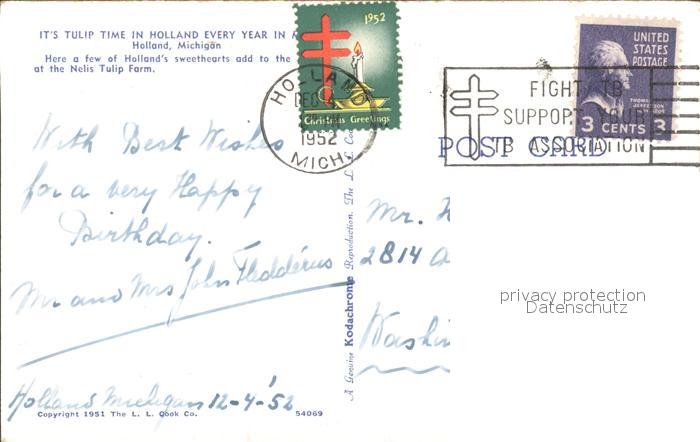 IT'S TULIP TIME IN HOLLAND EVERY YEAR IN
Holland, Michigan
Here a few of Holland's sweethearts add to the
at the Nelis Tulip Farm.
1952
Christmas Greetings
HOLLAND
DEC 4
1952
MICH.
FIGHT TB
SUPPORT YOUR
TB ASSOCIATION
UNITED
STATES
POSTAGE
THOMAS
JEFFERSON
3 CENTS 3
POST CARD
With Best Wishes
for a very Happy
Birthday.
Mr and Mrs John Fledderus
Holland Michigan 12-4-'52
Copyright 1951 The L. L. Cook Co. 54069
A Genuine Kodachrome Reproduction. The L. L. Cook Co.
Mr.
2814
Washi
privacy protection
Datenschutz